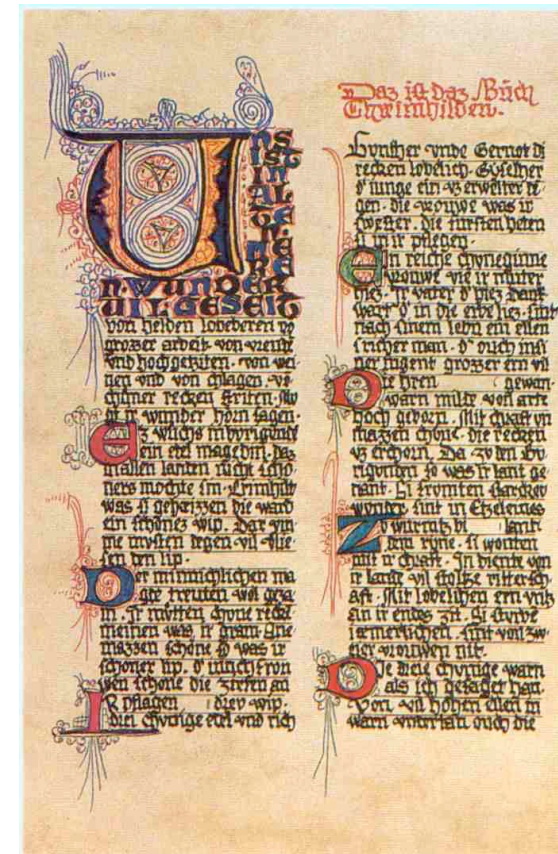 UNS
IST
IN AL
TEN
MÆRE
N. WUNDER
UIL GESEIT
von helden lobeberen võ
grozzer arbeit. von vreude
vnd hochgeziten. von wei
nen vnd von chlagen. vō
chuner recken striten. mv
gt ir wunder horn sagen.
Ez wůchs in bvrigunde
ein etel magedin. daz
in allen lanten nicht scho
ners mochte sin. Crimhilt
was si geheizzen die ward
ein schones wip. Dar vm
ne mvsten degen vil vlie
sen den lip.
Der minnichlichen ma
gte trevten wol geza
m. Ir mvtten chvne recke
neinen was ir gram. Ane
mazzen schone so was ir
schoner lip. d' iunchfron
wen schone die zierten an
pflagen diev wip.
I
drei chvnige etel vnd rich
Daz ist daz Bůch
Chreimhilden.
Gvnther vnde Gernot di
recken lobelich. Gyselher
d' iunge ein vz erwelter de
gen. die vrouwe was ir
swester. die fursten heten
si in ir pflegen.
Ein reiche chvneginne
vrouwe vte ir muter
hiez. Ir vater d' hiez Dank
wart d' in die erbe liez. sint
nach sinem lebn ein ellen
s richer man. d' ouch in si
ner iugent grozzer ern vil
Die hren gewan.
warn milte von arte
hoch geborn. Mit chraft vn
mazzen chvne. die recken
vz erchorn. Da zv den Bv
rigonden so was ir lant ge
nant. Si frvmten starckev
wunder sint in Etzeleines
Zo wurmtz bi lant.
dem ryne. si wonten
mit ir chraft. In diente von
ir lande vil stoltze ritersch
aft. Mit lobelichen ern vntz
an ir endes zit. Si sturbe
iæmerlichen. sint von zw
eier vrouwen nit.
Die drie chvnige warn
als ich gesaget han.
von vil hohen ellen in
warn vntertan ouch die